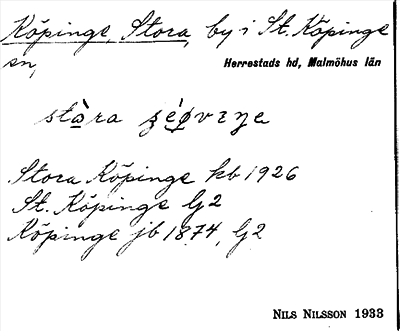 Köpinge, Stora, by i St. Köpinge
sn,
Herrestads hd, Malmöhus län
stàra
Stora Köpinge kb 1926
St. Köpinge Gj2
Köpinge jb 1874, Gj2
NILS NILSSON 1933